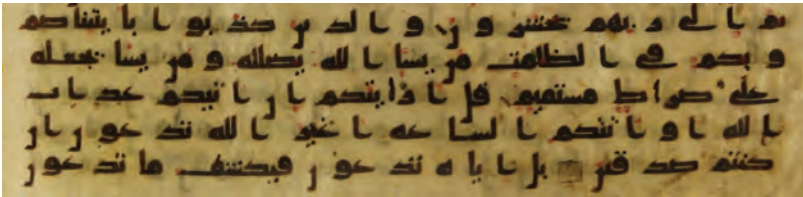 ثم الى ربهم يحشرون والذين كذبوا بايتنا صم
وبكم في الظلمت من يشا الله يضلله ومن يشا يجعله
على صراط مستقيم قل ارايتكم ان اتيكم عذاب
الله او اتتكم الساعه اغير الله تدعون ان
كنتم صدقين بل اياه تدعون فيكشف ما تدعون